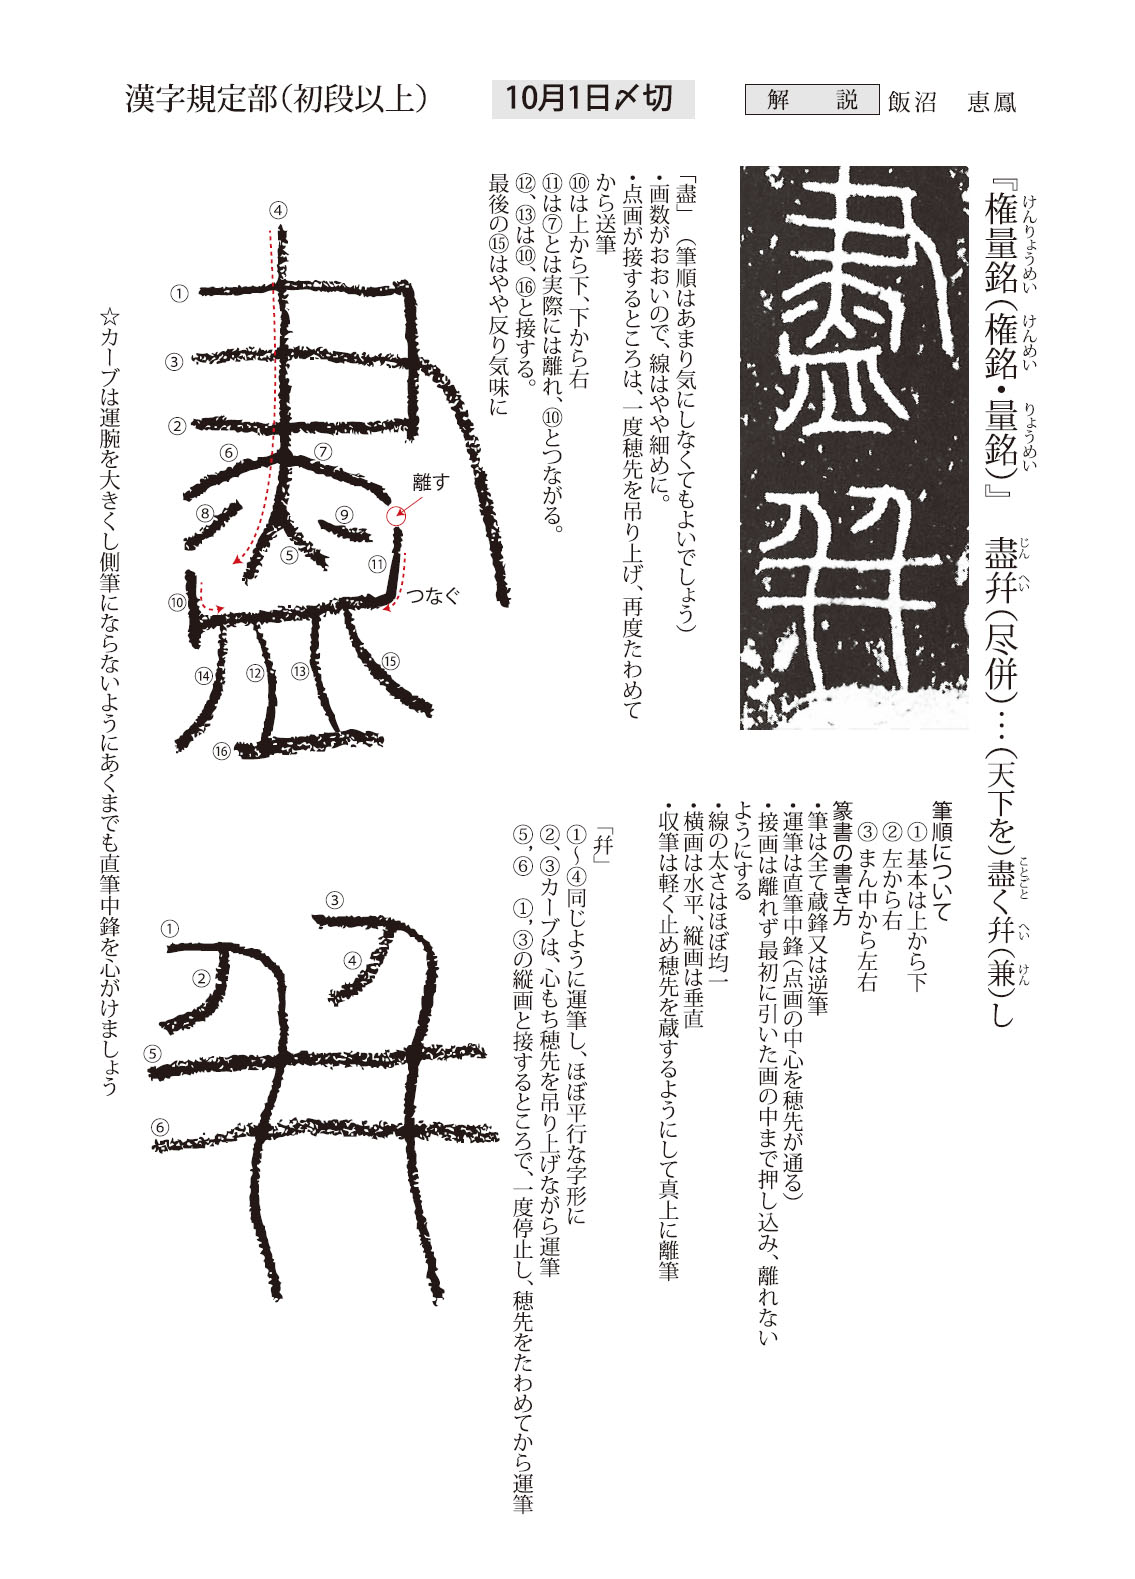 漢字規定部（初段以上）
10月1日〆切
解　説
飯沼　恵鳳
『権量銘（権銘・量銘）』　盡幷（尽併）…（天下を）盡く幷（兼）し
けんりょうめい　けんめい　りょうめい　じん　へい　ことごと　へい　けん
「盡」（筆順はあまり気にしなくてもよいでしょう）
・画数がおおいので、線はやや細めに。
・点画が接するところは、一度穂先を吊り上げ、再度たわめて
から送筆
⑩は上から下、下から右
⑪は⑦とは実際には離れ、⑩とつながる。
⑫、⑬は⑩、⑯と接する。
最後の⑮はやや反り気味に
④
①
③
②
⑥
⑦
離す
⑧
⑨
⑤
⑪
つなぐ
⑩
⑭
⑫
⑬
⑮
⑯
☆カーブは運腕を大きくし側筆にならないようにあくまでも直筆中鋒を心がけましょう
筆順について
①基本は上から下
②左から右
③まん中から左右
篆書の書き方
・筆は全て蔵鋒又は逆筆
・運筆は直筆中鋒（点画の中心を穂先が通る）
・接画は離れず最初に引いた画の中まで押し込み、離れない
ようにする
・線の太さはほぼ均一
・横画は水平、縦画は垂直
・収筆は軽く止め穂先を蔵するようにして真上に離筆
「幷」
①〜④同じように運筆し、ほぼ平行な字形に
②、③カーブは、心もち穂先を吊り上げながら運筆
⑤,⑥　①,③の縦画と接するところで、一度停止し、穂先をたわめてから運筆
③
①
④
②
⑤
⑥